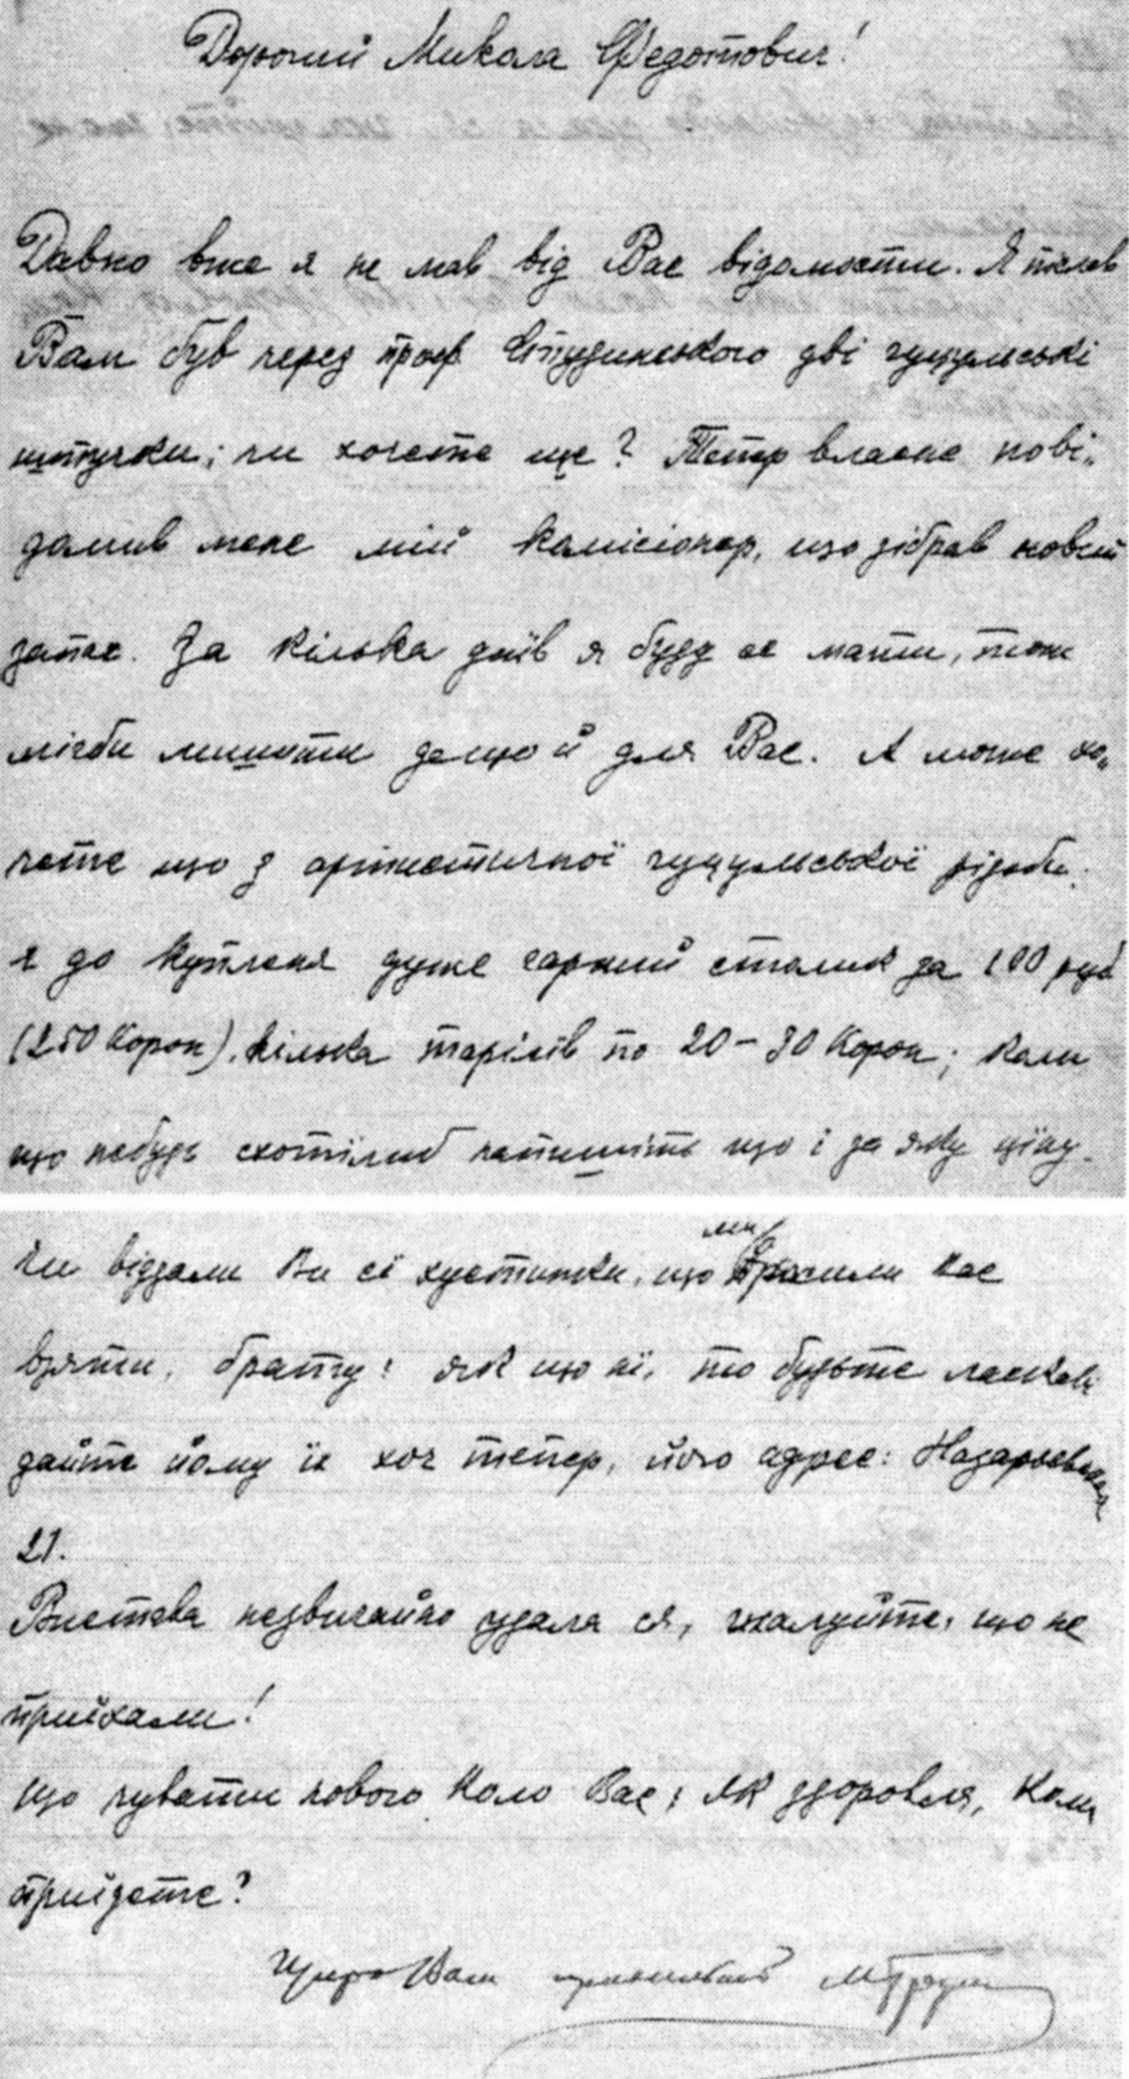 Дорогий Микола Федотович!
Давно вже я не мав від Вас відомости. Я післав
Вам був через проф Студинського дві гуцульські
штучки; чи хочете ще? Тепер власне пові„
домив мене мій комісіонер, що зібрав новий
запас. За кілька днїв я буду се мати, тож
мігби лишити дещо й для Вас. А може хо„
чете що з артистичної гуцульської різьби.
є до купленя дуже гарний столик за 100 руб
(250 Корон), кілька тарілїв по 20–30 Корон; коли
що небудь схотїлиб напишіть що і за яку цїну.
Чи віддали Ви сї хустинки, що ми просили Вас
взяти, брату; як що нї, то будьте ласкаві
дайте йому їх хоч тепер, його адрес: Назарьевская
21.
Вистава незвичайно удала ся, жалуйте, що не
приїхали!
Що чувати нового коло Вас; як здоровля, коли
приїдете?
Щиро Ваш прихильний МГрушев